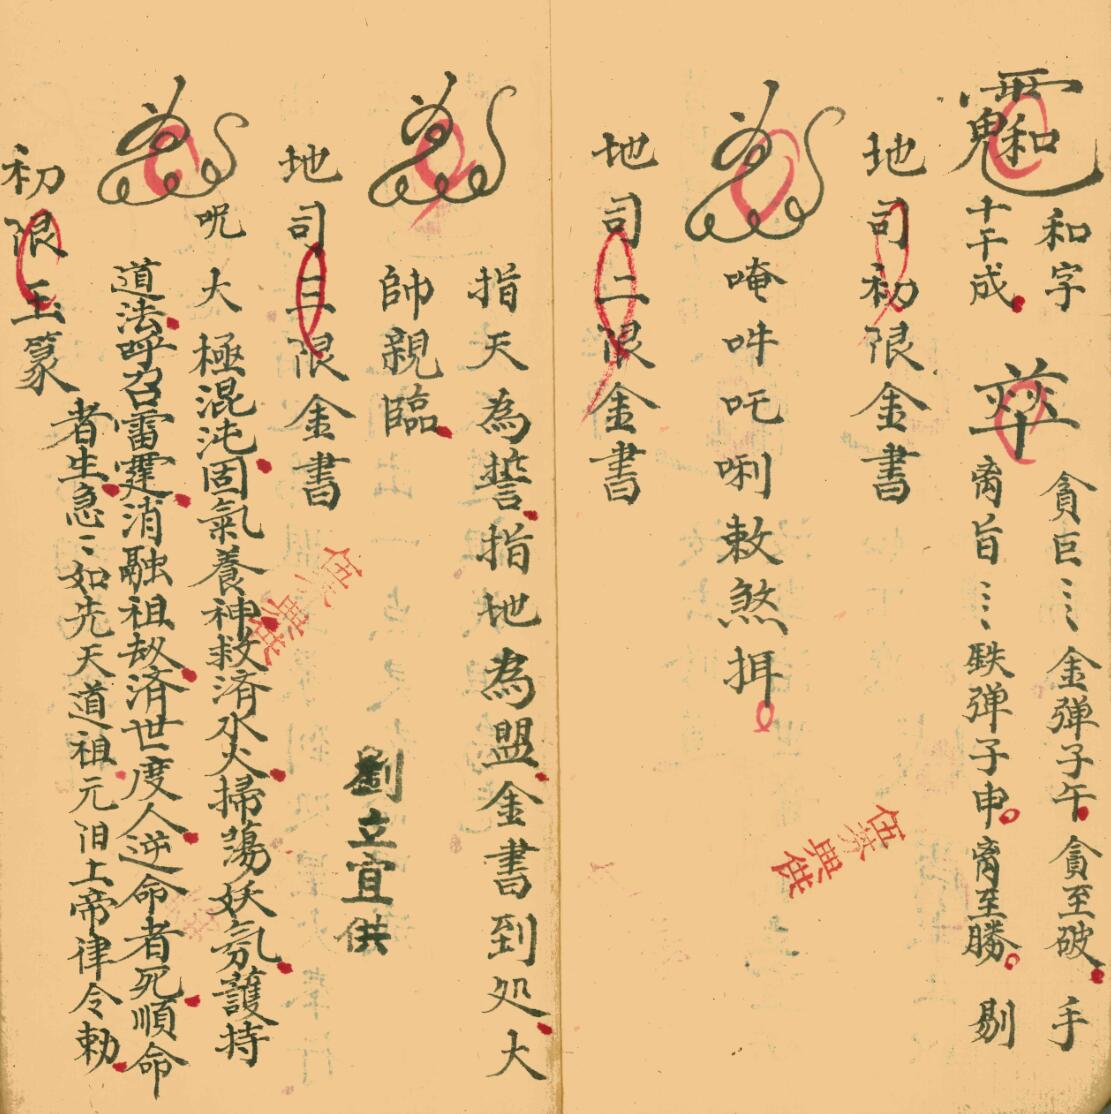 和字 貪巨〻〻金弾子午貪至破 手
十干成 𦥯旨〻〻鉄弾子申 至勝 剔
地司初限金書
唵吽吒唎敕煞揖
地司二限金書
指天為誓指地為盟金書到処大
帥親臨
劉立宜供
地司三限金書
呪 大極混沌固氣養神救済水火掃蕩妖氛護持
道法呼召雷霆消融祖劫済世度人逆命者死順命
者生急〻如先天道祖元始上帝律令勅
初限玉篆
伍榮興供
伍榮興供